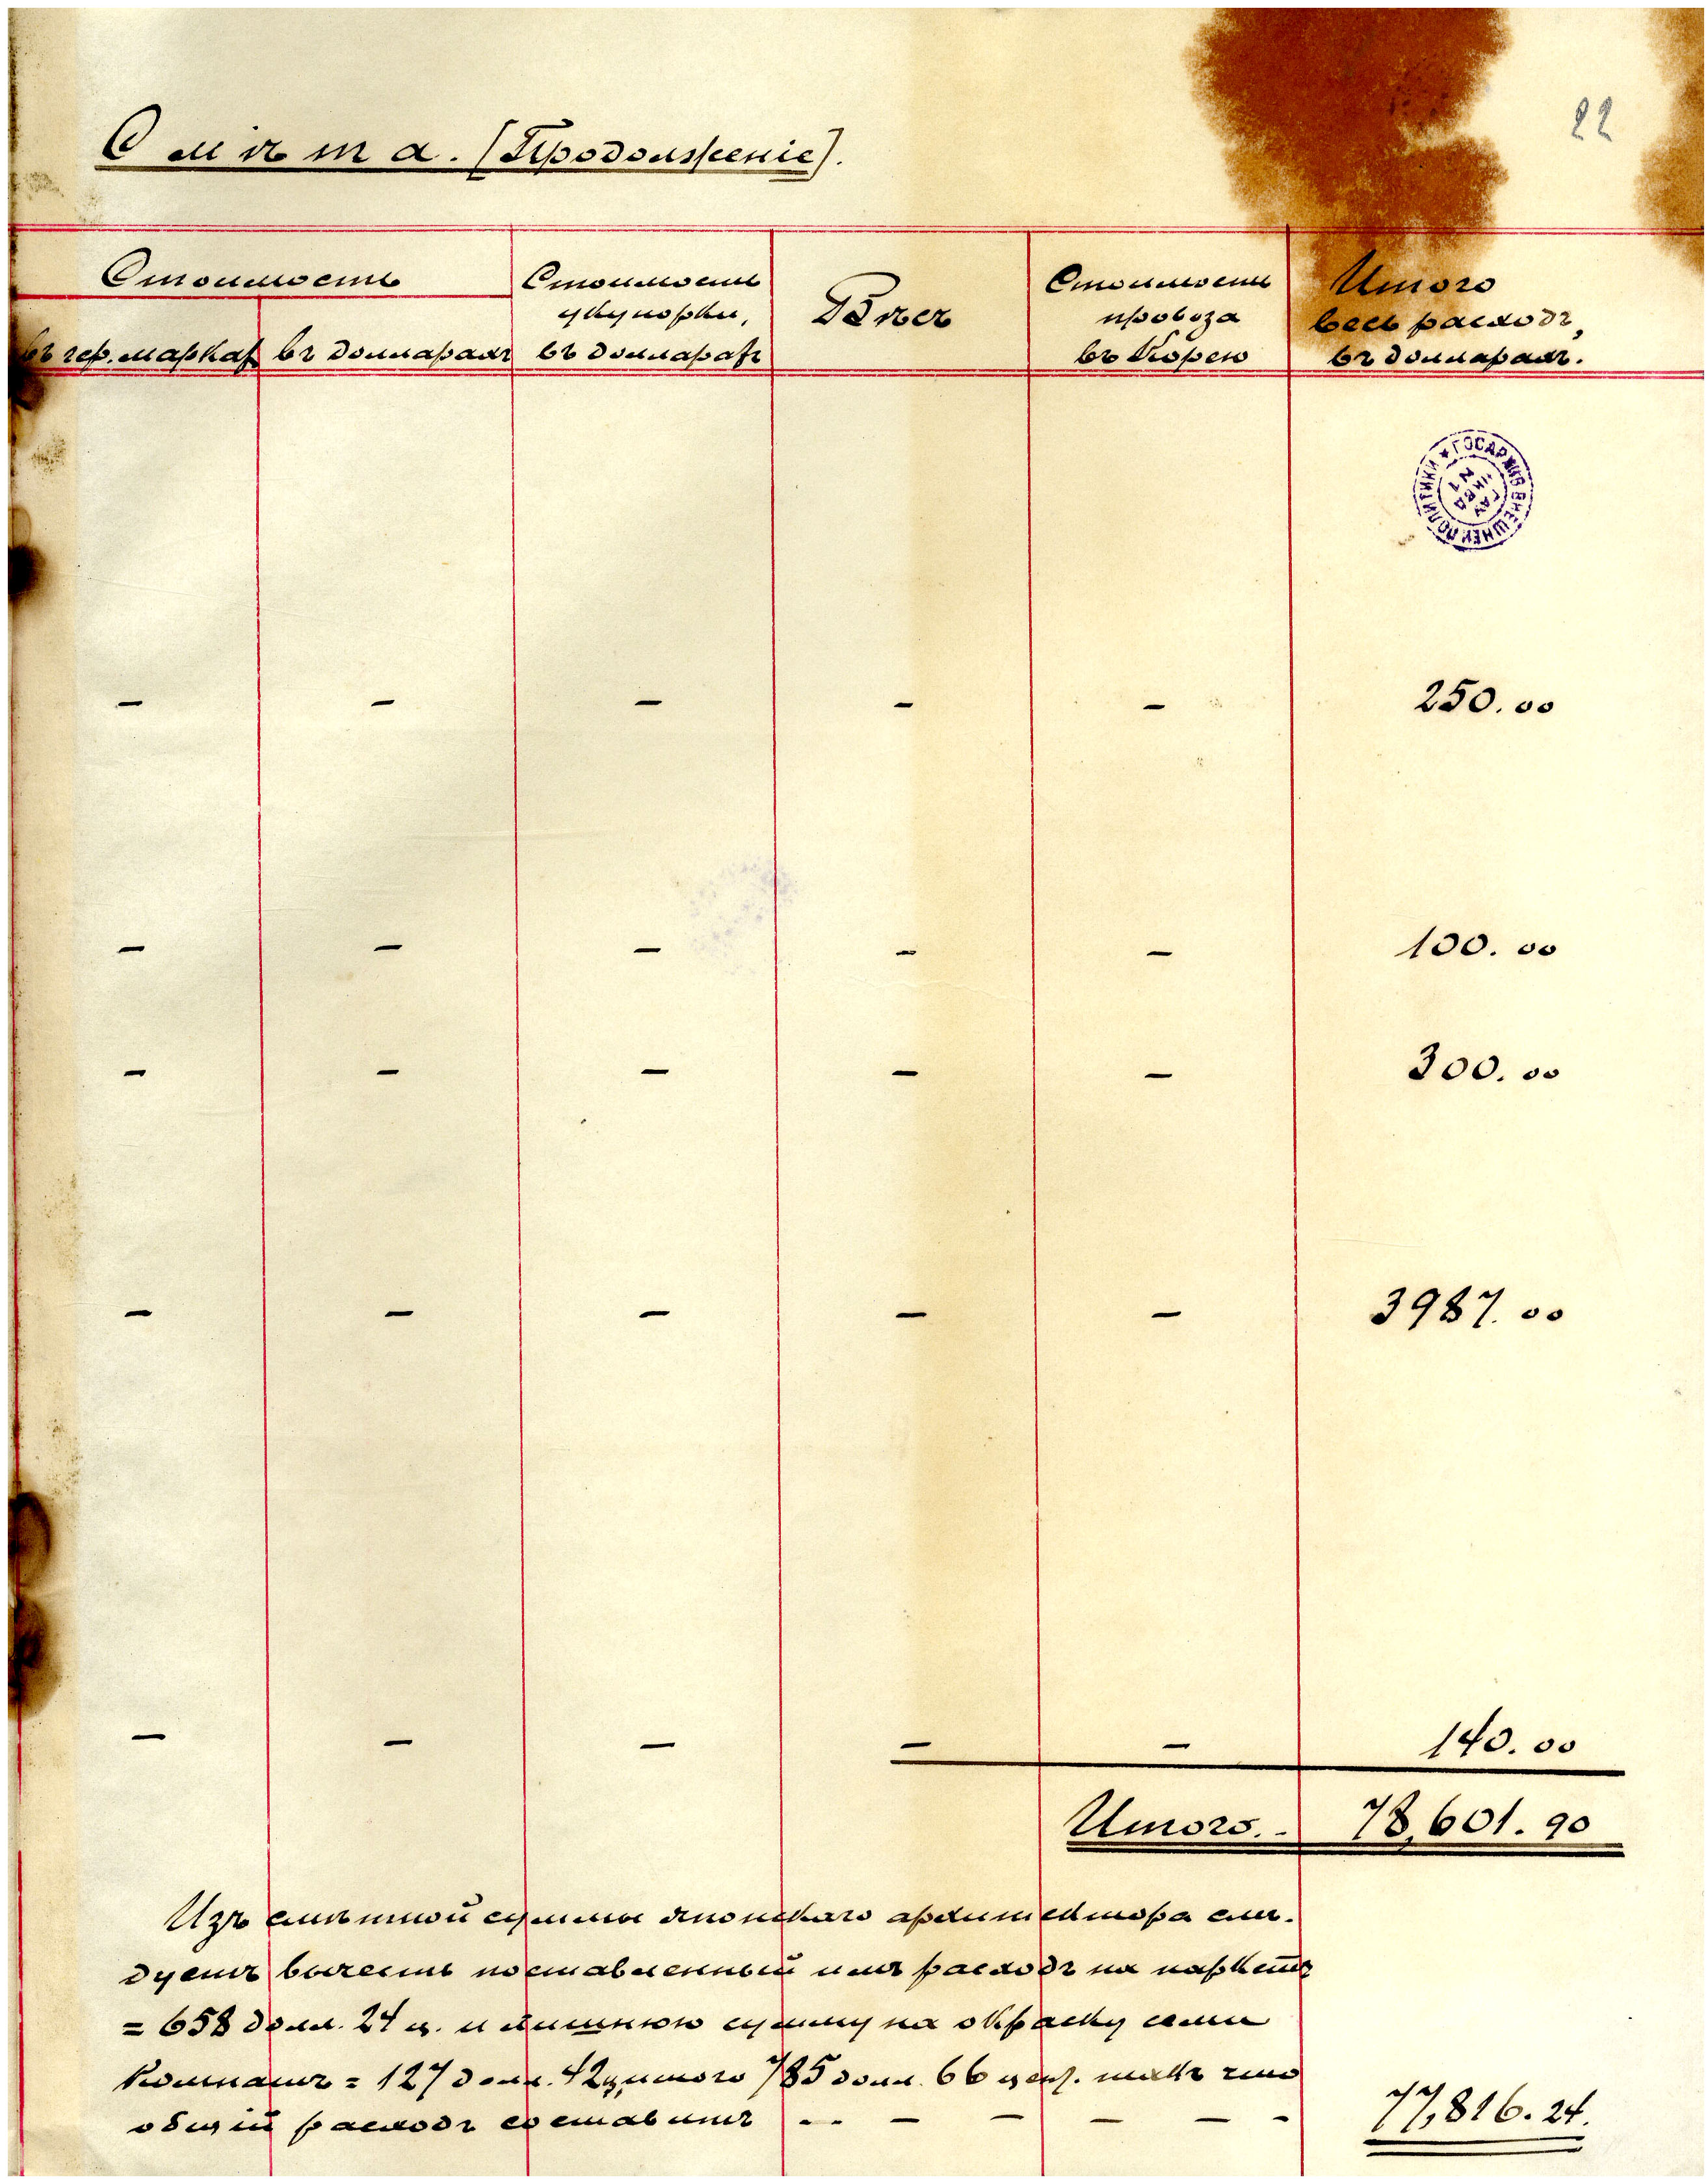 22
Смѣта. (Продолженіе).
Стоимость
въ гер. маркахъ
въ долларахъ
Стоимость
укупорки,
въ долларахъ
Стоимость
провоза
въ Корею
Итого
весь расходъ,
въ долларахъ.
ГОСАРХИВ ВНЕШНЕЙ ПОЛИТИКИ
ГАУ
НКВД
— — — — — 250.00
— — — — — 100.00
— — — — — 300.00
— — — — — 3987.00
— — — — — 140.00
Итого. - 78,601.90
Изъ смѣтной суммы японскаго архитектора слѣ-
дуетъ вычесть поставленный имъ расходъ на паркетъ
= 658 долл. 24 ц. и лишнюю сумму на окраску семи
комнатъ = 127 долл. 42 ц, итого 785 долл. 66 ц. такъ что
общій расходъ составитъ - - - - - - - 77,816.24.